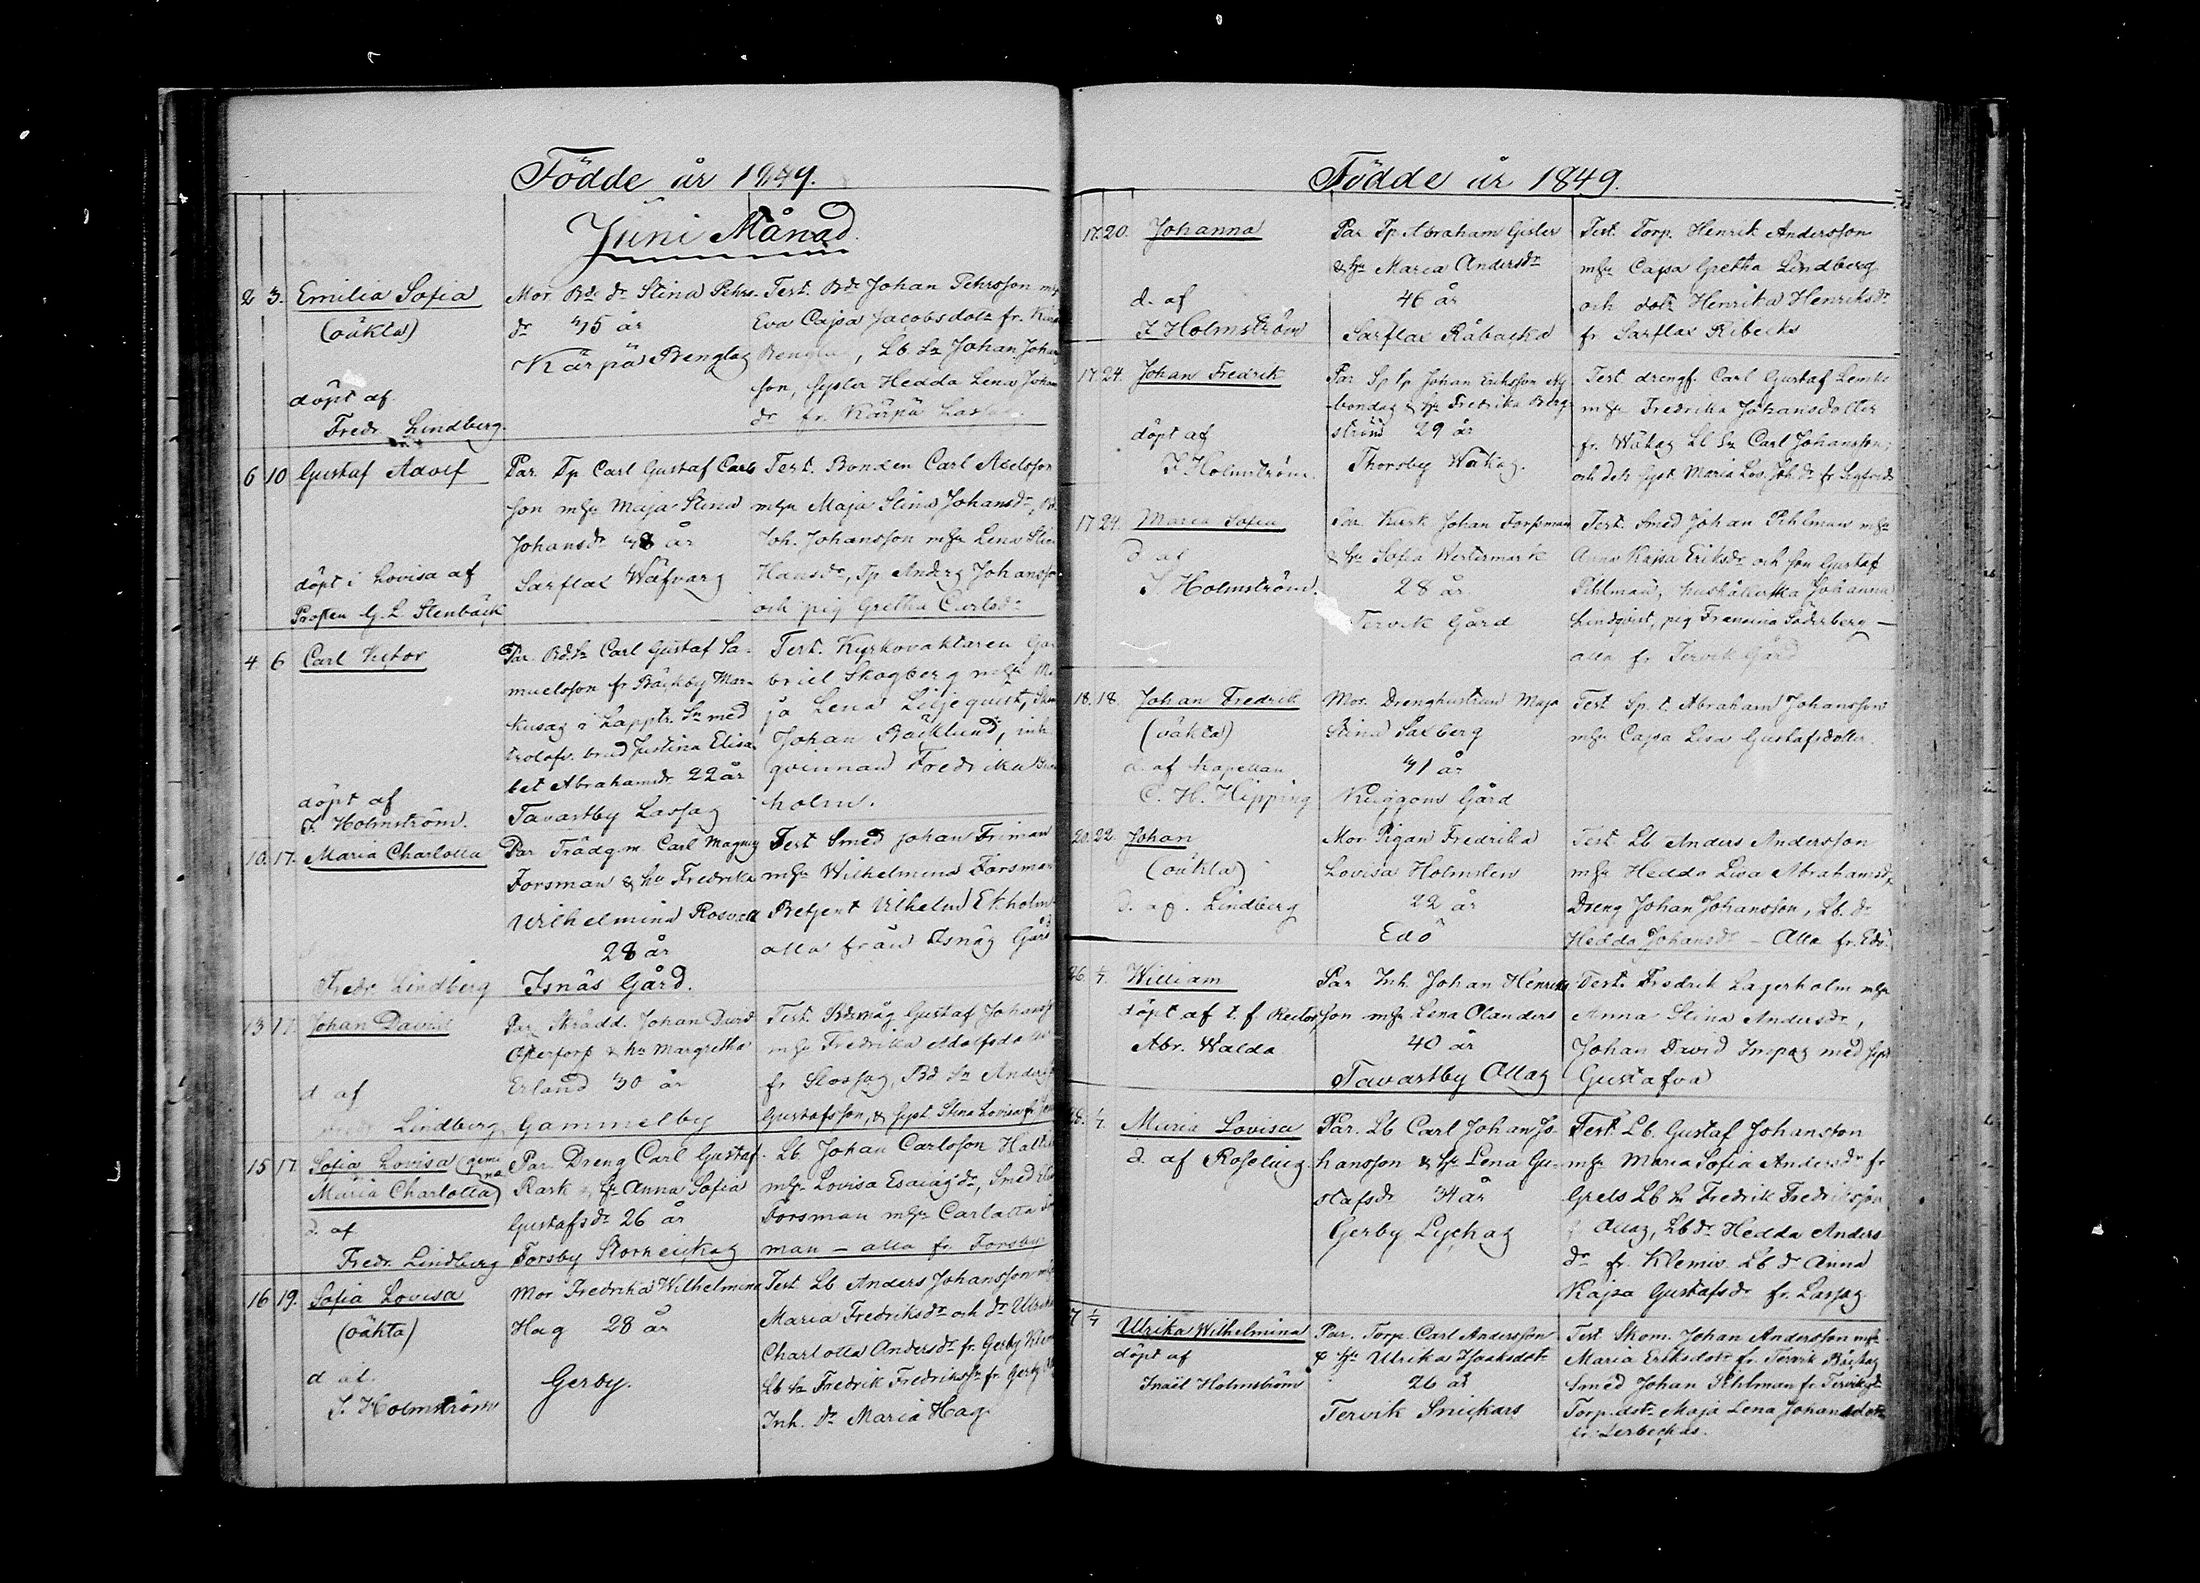 Födde år 1849.
Juni Månad.
2 3. Emilia Sofia
(oäkta)
döpt af
Fredr. Lindberg.
Mor Bde dr Stina Pehrs-
dr 45 år
Kärpä Benglas
Test. Bde Johan Pehrsson
Eva Cajsa Jacobsdotr fr.
Lb. Sn Johan Johan
son, syster Hedda Lena Johan
dr fr. Kärpä Lassas
6 10 Gustaf Adolf
döpt i Lovisa af
Prosten G. L. Stenbäck
Par. Tp Carl Gustaf Carls
son mhu Maja Stina
Johansdr 48 år
Sarflax Wäfvars
Test. Bonden Carl Axelsson
mhu Maja Stina Johansdr,
Joh. Johansson mhu Lena Stin
Hansdr, Tp Anders Johansso
och pig Gretha Carlsdr
4. 6 Carl Victor
döpt af
I. Holmström.
Par. Bd. Sn Carl Gustaf Sa-
muelsson fr Bäckby Mar-
kusas i Lappträ Sn med
trolofv. brud Justina Elisa
bet Abrahamsdr 22 år
Tavastby Lassas
Test. Kyrkovaktaren Ga
briel Skogberg mhu Ma
ja Lena Liljequist,
Johan Bäcklund, inh.
qvinnan Fredrika
holm.
10. 17. Maria Charlotta
Fredr. Lindberg
Par Trädg.m. Carl Magnus
Forsman & hu Fredrika
Wilhelmina Rosvall
28 år
Isnäs Gård.
Test Smed Johan Friman
mhu Wilhelmina Forsman
Betjent Vilhelm Ekholm
alla från Isnäs Gård
13 17. Johan David
d af
Lindberg
Par Skrädd. Johan David
Åkertorp & hu Margretha
Erland 30 år
Gammelby
Test. Bdemåg Gustaf Johanss
mhu Fredrika Adolfsdotr
fr Skossas, Bd Sn Anders
Gustafsson, & syst Stina Lovisa fr
15 17. Sofia Lovisa (gemi
Maria Charlotta) na
d. af
Fredr. Lindberg
Par Dreng Carl Gustaf
Rask & hu Anna Sofia
Gustafsdr 26 år
Forsby Storheickas
Lb Johan Carlsson
mhu Lovisa Esaiasdr, Smed
Forsman mhu Carlotta
man – alla fr. Forsby
16 19. Sofia Lovisa
(oäkta)
d af.
I. Holmström
Mor Fredrika Wilhelmina
Hag 28 år
Gerby.
Test Lb Anders Johansson
Maria Fredriksdr och dr Ulrika
Charlotta Andersdr fr. Gerby
Lb Sn Fredrik Fredrikss fr Gerby
Inh. dr Maria Hag
Födde år 1849.
17. 20. Johanna
d. af
I Holmström
Par Tp Abraham Gisler
& hu Maria Andersdr
46 år
Sarflax Råbacka
Test. Torp. Henrik Andersson
mhu Cajsa Gretha Lindberg
och dotr Henrika Henriksdr
fr Sarflax Ribecks
17. 24. Johan Fredrik
döpt af
I Holmström.
Par Sp tp Johan Eriksson Ny-
bondas & hu Fredrika Berg-
ström 29 år
Thorsby Wäkas.
Test drengf. Carl Gustaf
mhu Fredrika Johansdotter
fr. Wäkas Lb Sn Carl Johansson,
och dess syst Maria Lov. Joh.dr fr Sigfreds
17 24. Maria Sofia
d af
I Holmström.
Par. Kusk Johan Forssman
& hu Sofia Westermark
28 år.
Tervik Gård
Test. Smed Johan Pihlman mhu
Anna Kajsa Eriksdr och son Gustaf
Pihlman, hushållerska Johanna
Lindqvist, pig Fransina Söderberg –
alla fr Tervik Gård
18. 18. Johan Fredrik
(oäkta)
d. af Kapellan
C. H. Hipping
Mor. Drenghustrun Maja
Stina Saxberg
41 år
Kuggom Gård
Test Sp. t. Abraham Johansson
mhu Cajsa Lisa Gustafsdotter.
20. 22. Johan
(oäkta)
d. af. Lindberg
Mor Pigan Fredrika
Lovisa Holmsten
22 år
Edö
Test Lb Anders Andersson
mhu Hedda Lisa Abrahamsdr,
Dreng Johan Johansson, Lb. dr
Hedda Johansdr – Alla fr. Edö.
26. 1/7. William
döpt af t. f. Rector
Abr. Walda
Par Inh. Johan Henriks
son mhu Lena Olanders
40 år
Tavastby Ollas
Test. Fredrik Lagerholm mhu
Anna Stina Andersdr,
Johan David med syst
Gustafva
28. 1/7. Maria Lovisa
d. af Roseling
Par. Lb Carl Johan Jo-
hansson & hu Lena Gu-
stafsdr 34 år
Gerby Lyckas
Test Lb. Gustaf Johansson
mhu Maria Sofia Andersdr fr
Grels Lb Sn Fredrik Fredriksson
f Ollas, Lb dr Hedda Anders
dr fr. Klemis Lb dr Anna
Kajsa Gustafsdr fr. Lassas
7 1/7 Ulrika Wilhelmina
döpt af
Israel Holmström
Par. Torp. Carl Andersson
& hu Ulrika Isaksdotr
26 år
Tervik Snickars
Test Skom. Johan Andersson mhu
Maria Eriksdotr fr. Tervik
Smed Johan Pihlman fr. Tervik gd
Torp.dotr Maja Lena Johansdotr
fr. Lerbeckas.